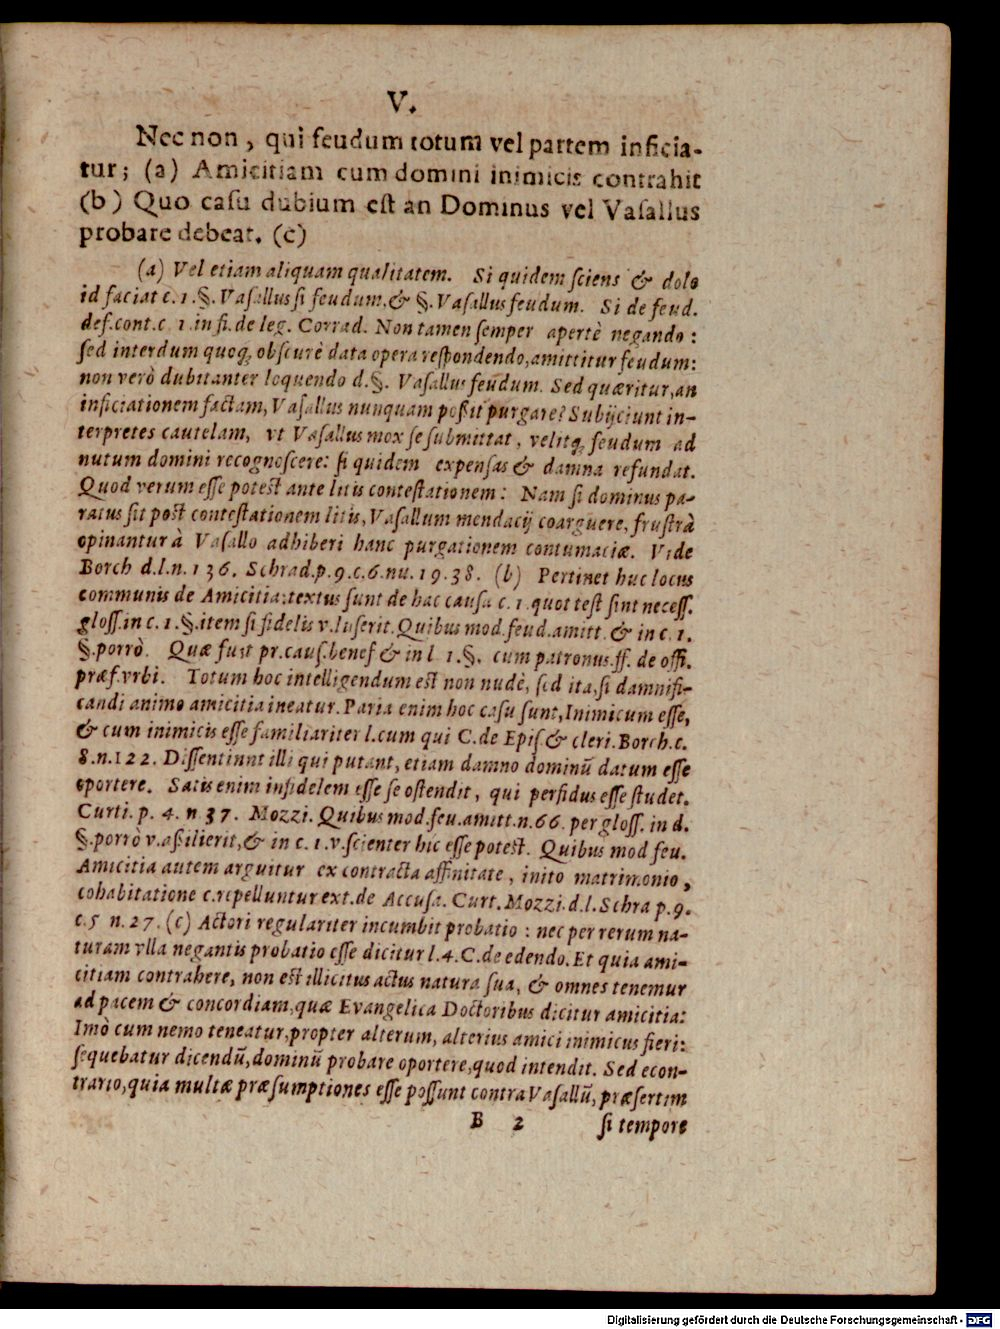 V.
Nec non, qui feudum totum vel partem inficia-
tur; (a) Amicitiam cum domini inimicis contrahit
(b) Quo caſu dubium eſt an Dominus vel Vaſallus
probare debeat. (c)
(a) Vel etiam aliquam qualitatem. Si quidem ſciens & dolo
id faciat c. 1. §. Vaſallus ſi feudum. & §. Vaſallus feudum. Si de feud.
def. cont. c. 1. in fi. de leg. Corrad. Non tamen ſemper apertè negando:
ſed interdum quoq; obſcurè data opera reſpondendo, amittitur feudum:
non verò dubitanter loquendo d. §. Vaſallus feudum. Sed quæritur, an
inficiationem factam, Vaſallus nunquam poßit purgare? Subijciunt in-
terpretes cautelam, vt Vaſallus mox ſe ſubmittat, velitq; feudum ad
nutum domini recognoſcere: ſi quidem expenſas & damna refundat.
Quod verum eſſe poteſt ante litis conteſtationem: Nam ſi dominus pa-
ratus ſit poſt conteſtationem litis, Vaſallum mendacij coarguere, fruſtrà
opinantur à Vaſallo adhiberi hanc purgationem contumaciæ. Vide
Borch d. l. n. 136. Schrad. p. 9. c. 6. nu. 19. 38. (b) Pertinet huc locus
communis de Amicitia: textus ſunt de hac cauſa c. 1. quot teſt ſint neceſſ.
gloſſ. in c. 1. §. item ſi fidelis v. luſerit. Quibus mod. feud. amitt. & in c. 1.
§. porrò. Quæ fuit pr. cauſ. benef & in l 1. §. cum patronus. ff. de offi.
præf. vrbi. Totum hoc intelligendum eſt non nudè, ſed ita, ſi damnifi-
candi animo amicitia ineatur. Paria enim hoc caſu ſunt, Inimicum eſſe,
& cum inimicis eſſe familiariter l. cum qui C. de Epiſ. & cleri. Borch. c.
8. n. 122. Diſſentiunt illi qui putant, etiam damno dominũ datum eſſe
oportere. Satis enim infidelem eſſe ſe oſtendit, qui perfidus eſſe ſtudet.
Curti. p. 4. n. 37. Mozzi. Quibus mod. feu. amitt. n. 66. per gloſſ. in d.
§. porrò v. aßilierit, & in c. 1. v. ſcienter hic eſſe poteſt. Quibus mod feu.
Amicitia autem arguitur ex contracta affinitate, inito matrimonio,
cohabitatione c. repelluntur ext. de Accuſa. Curt. Mozzi. d. l. Schra p. 9.
c. 5 n. 27. (c) Actori regulariter incumbit probatio: nec per rerum na-
turam vlla negantis probatio eſſe dicitur l. 4. C. de edendo. Et quia ami-
citiam contrahere, non eſt illicitus actus natura ſua, & omnes tenemur
ad pacem & concordiam, quæ Evangelica Doctoribus dicitur amicitia:
Imò cum nemo teneatur, propter alterum, alterius amici inimicus fieri:
ſequebatur dicendũ, dominũ probare oportere, quod intendit. Sed econ-
trario, quia multæ præſumptiones eſſe poſſunt contra Vaſallũ, præſertim
B 2 ſi tempore
Digitalisierung gefördert durch die Deutsche Forschungsgemeinschaft - DFG